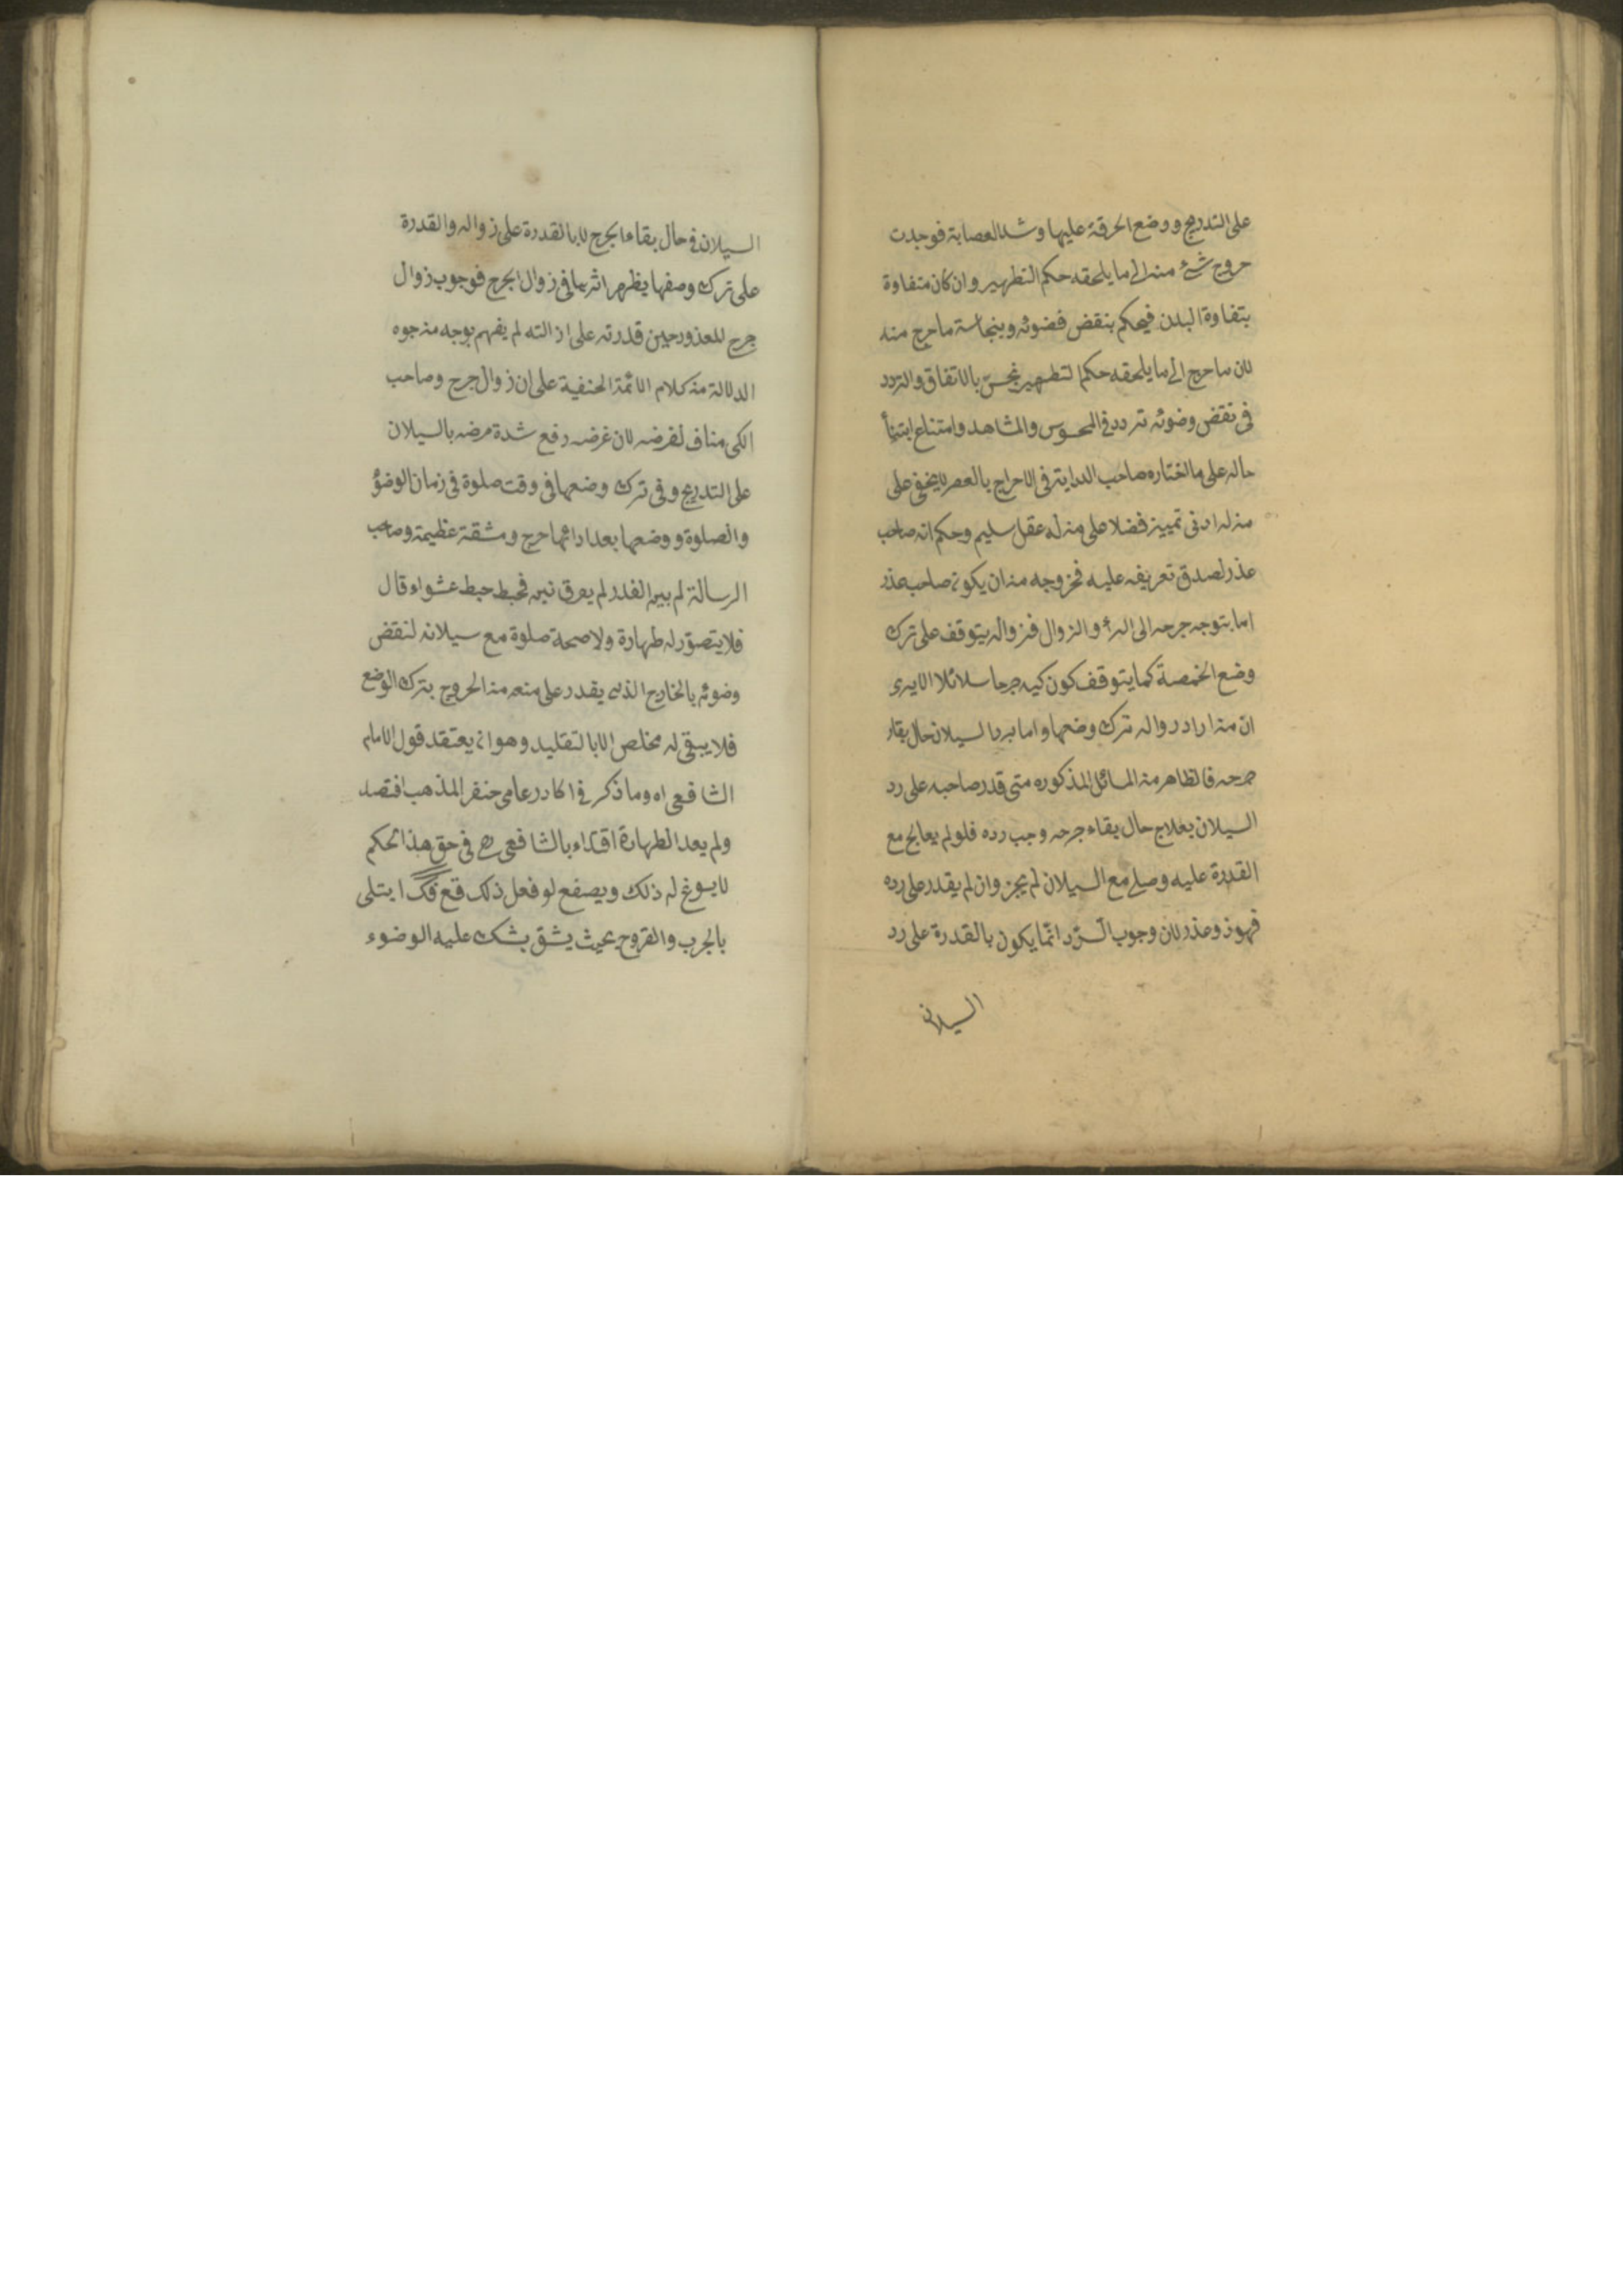 على التدريج ووضع الحرقة عليها وشد العصابة فوجدت
حروج شئ منه الى ما يلحقه حكم التطهير وان كان متفاوة
بتفاوة البدن فيحكم بنقض فضوئه وبنجاسة ماحرج منه
لان ماحرج الى ما يلحقه حكم التطهير نجس بالاتفاق والتردد
فى نقض وضوئه تردد فى المحسوس والمشاهد وامتناع ابتنأ
حاله على ما اختاره صاحب الهداية فى الاحراج بالعصر لا يخفى على
من له ادنى تمييز فضلا على من له عقل سليم وحكم انه صاحب
عذر لصدق تعريفه عليه فخروجه من ان يكون صاحب عذر
اما بتوجه جرحه الى البرأ والزوال فزواله يتوقف على ترك
وضع الحمصة كما يتوقف كون كيه جرحا سائلا الا يرى
ان من اراد زواله ترك وضعها واما برد السيلان حال بقاء
جرحه فالظاهر من المسائل المذكوره متى قدر صاحبه على رد
السيلان بعلاج حال بقاء جرحه وجب رده فلو لم يعالج مع
القدرة عليه وصلى مع السيلان لم يجز وان لم يقدر على رده
فهو ذو عذر لان وجوب الرد انما يكون بالقدرة على رد
السيلان
السيلان فى حال بقاء الجرح لا بالقدرة على زواله والقدرة
على ترك وضعها يظهر اثرها فى زوال الجرح فوجوب زوال
جرح للمعذور حين قدرته على ازالته لم يفهم بوجه من جوه
الدلالة من كلام الائمة الحنفية على ان زوال جرح وصاحب
الكى مناف لغرضه لان غرضه رفع شدة مرضه بالسيلان
على التدريج وفى ترك وضعها فى وقت صلوة فى زمان الوضؤ
والصلوة ووضعها بعد ادائها حرج ومشقة عظيمة وصاحب
الرسالة لم يبين الغدر لم يعرق بين فحبط حبط عشواء قال
فلا يتصور له طهارة ولا صحة صلوة مع سيلانه لنقض
وضوئه بالخارج الذى يقدر على منعه من الحروج بترك الوضع
فلا يبقى له مخلص الا بالتقليد وهو ان يعتقد قول الامام
الشافعى اه وما ذكر فى عامى حنفى المذهب افتصد
ولم يعد الطهارة اقتداء بالشافعى رح فى حق هذا الحكم
لا يسوغ له ذلك ويصفع لو فعل ذلك ابتلى
بالجرب والقروح بحيث يشق بشك عليه الوضوء